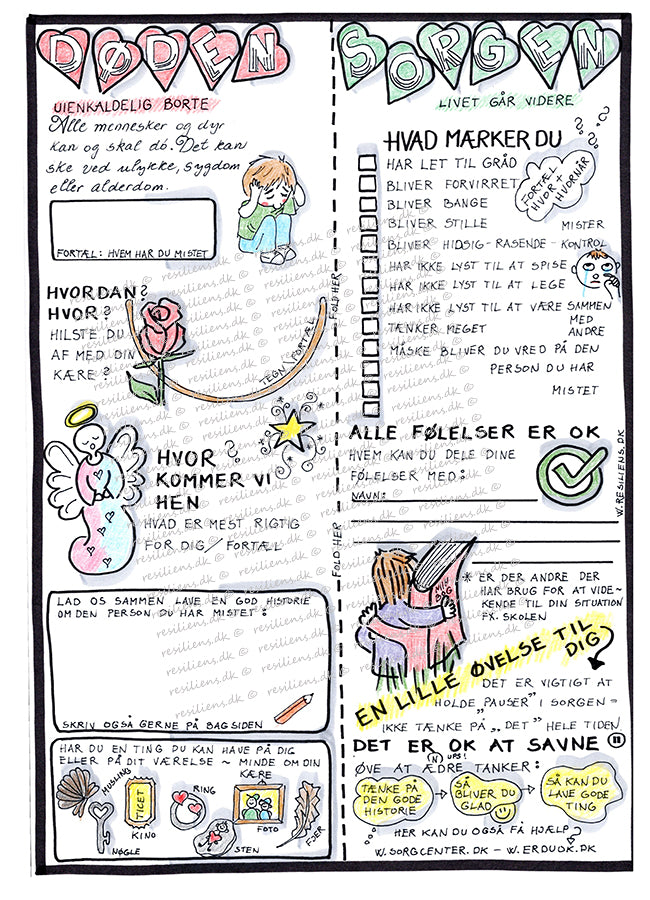 DØDEN
UIENKALDELIG BORTE
Alle mennesker og dyr
kan og skal dö. Det kan
ske ved ulykke, sygdom
eller alderdom.
FORTÆL: HVEM HAR DU MISTET
HVORDAN?
HVOR?
HILSTE DU
AF MED DIN
KÆRE?
TEGN/FORTÆL
HVOR ?
KOMMER VI
HEN
HVAD ER MEST RIGTIG
FOR DIG/FORTÆL
LAD OS SAMMEN LAVE EN GOD HISTORIE
OM DEN PERSON DU HAR MISTET:
SKRIV OGSÅ GERNE PÅ BAGSIDEN
HAR DU EN TING DU KAN HAVE PÅ DIG
ELLER PÅ DIT VÆRELSE ~ MINDE OM DIN
KÆRE
MUSLING
NØGLE
TICET
KINO
RING
STEN
FOTO
FJER
FOLD HER
FOLD HER
SORGEN
LIVET GÅR VIDERE
HVAD MÆRKER DU ???
FORTÆL
HVOR +
HVORNÅR
HAR LET TIL GRÅD
BLIVER FORVIRRET
BLIVER BANGE
BLIVER STILLE
BLIVER HIDSIG - RASENDE - MISTER KONTROL
HAR IKKE LYST TIL AT SPISE
HAR IKKE LYST TIL AT LEGE
HAR IKKE LYST TIL AT VÆRE SAMMEN
MED
ANDRE
TÆNKER MEGET
MÅSKE BLIVER DU VRED PÅ DEN
PERSON DU HAR
MISTET
ALLE FØLELSER ER OK
HVEM KAN DU DELE DINE
FØLELSER MED:
NAVN:
W.RESILIENS.DK
* ER DER ANDRE DER
HAR BRUG FOR AT VIDE-
KENDE TIL DIN SITUATION
FX. SKOLEN
EN LILLE ØVELSE TIL
DIG
DET ER VIGTIGT AT
HOLDE "PAUSER" I SORGEN -
IKKE TÆNKE PÅ „DET" HELE TIDEN
DET ER OK AT SAVNE
(N) UPS!
ØVE AT ÆDRE TANKER:
TÆNKE PÅ
DEN GODE
HISTORIE
SÅ
BLIVER DU
GLAD
SÅ KAN DU
LAVE GODE
TING
HER KAN DU OGSÅ FÅ HJÆLP?
W.SORGCENTER.DK - W.ERDUOK.DK
resiliens.dk ©